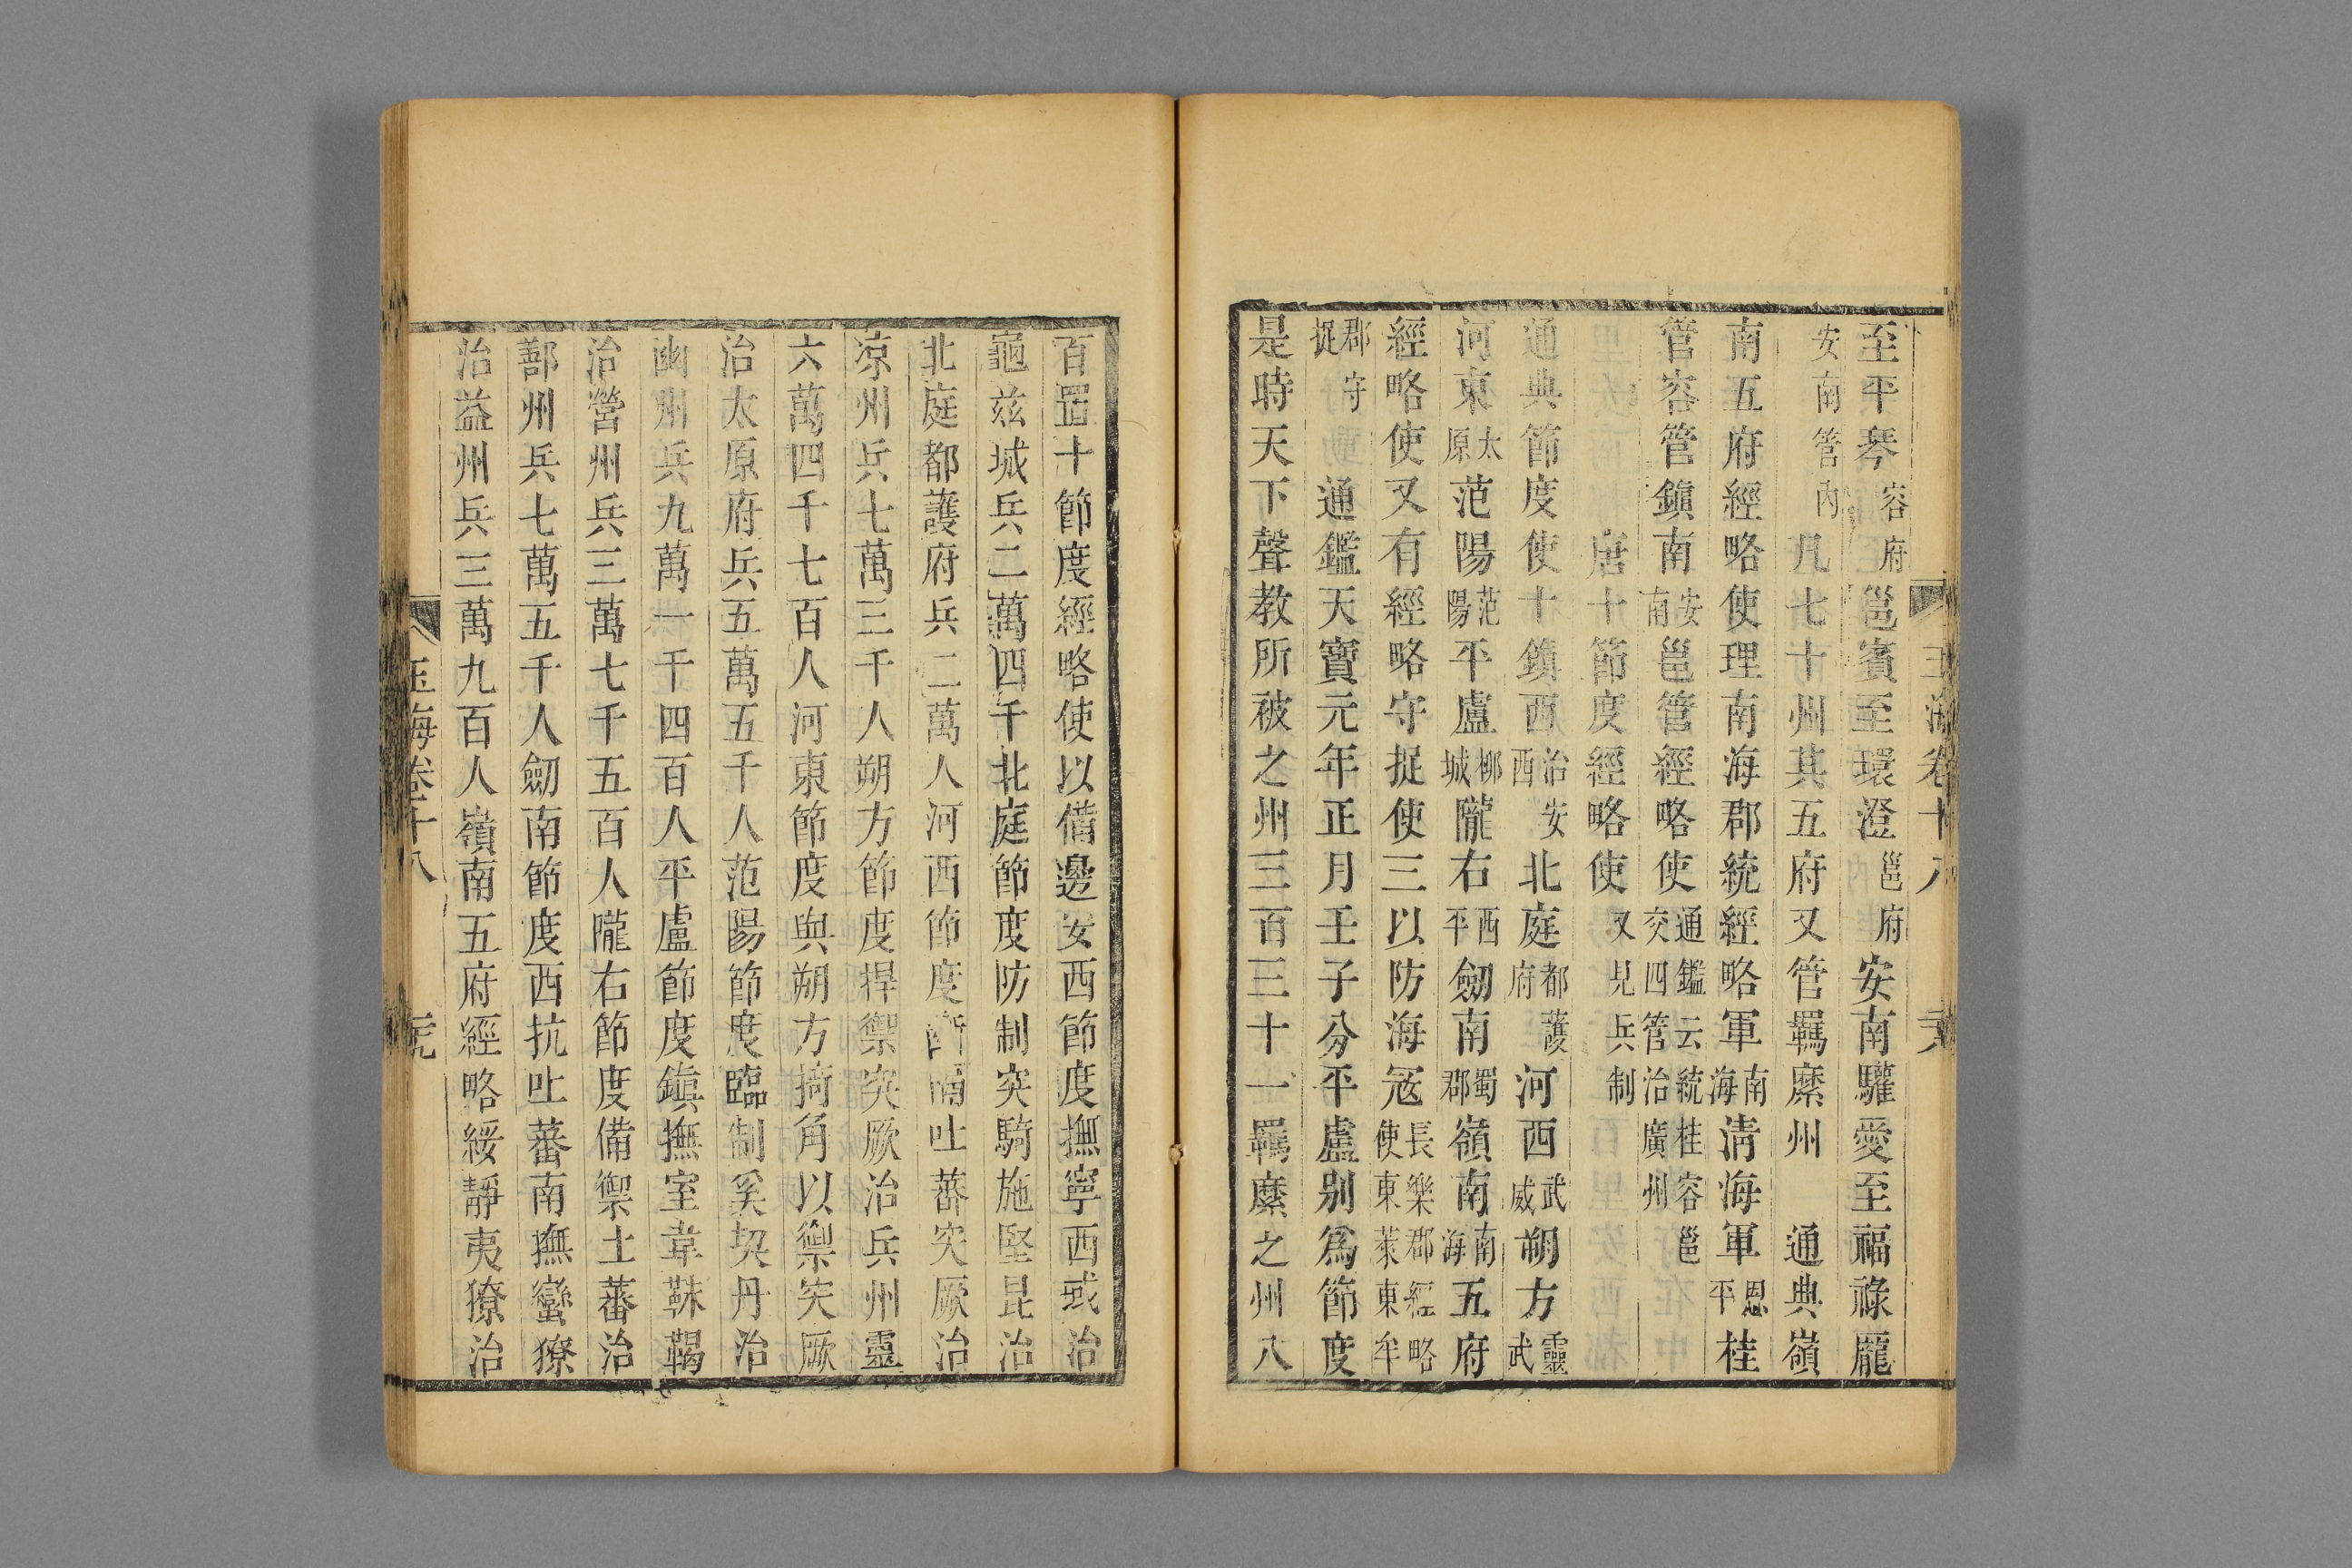 玉海卷十八
至平琴容府邕賓至環澄邕府安南驩愛至福祿龐
安南管內凡七十州其五府又管羈縻州　通典嶺
南五府經略使理南海郡統經略軍南海清海軍恩平桂
管容管鎮南安南邕管經略使通鑑云統桂容邕交四管治廣州
唐十節度經略使又見兵制
通典節度使十鎮西治安西北庭都護府河西武威朔方靈武
河東太原范陽范陽平盧柳城隴右西平劒南蜀郡嶺南南海五府
經略使又有經略守捉使三以防海寇長樂郡經略使東萊東牟
郡守捉　通鑑天寶元年正月壬子分平盧別爲節度
是時天下聲教所被之州三百三十一羈縻之州八
百置十節度經略使以備邊安西節度撫寧西域治
龜兹城兵二萬四千北庭節度防制突騎施堅昆治
北庭都護府兵二萬人河西節度斷隔吐蕃突厥治
凉州兵七萬三千人朔方節度捍禦突厥治兵州靈
六萬四千七百人河東節度與朔方掎角以禦突厥
治太原府兵五萬五千人范陽節度臨制奚契丹治
幽州兵九萬一千四百人平盧節度鎮撫室韋靺鞨
治營州兵三萬七千五百人隴右節度備禦土蕃治
鄯州兵七萬五千人劒南節度西抗吐蕃南撫蠻獠
治益州兵三萬九百人嶺南五府經略綏靜夷獠治
玉海卷十八